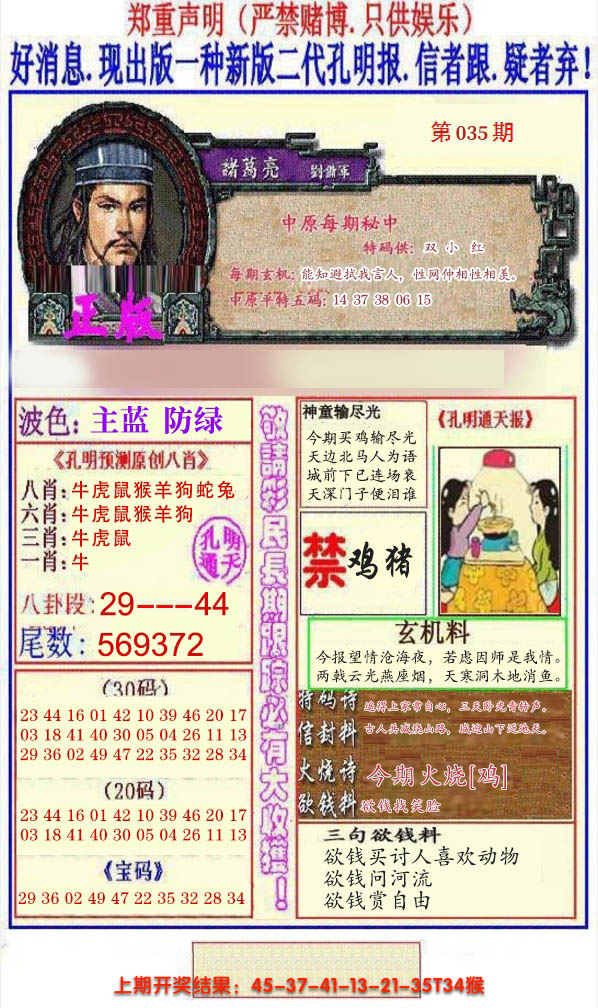 郑重声明（严禁赌博.只供娱乐）
好消息.现出版一种新版二代孔明报.信者跟.疑者弃！
第035期
諸葛亮 劉備軍
中原每期秘中
特码供：双 小 红
每期玄机：能知避拭我言人，性网仲相性相美。
中原平特五码：14 37 38 06 15
正版
波色：主蓝 防绿
《孔明预测原创八肖》
八肖：牛虎鼠猴羊狗蛇兔
六肖：牛虎鼠猴羊狗
三肖：牛虎鼠
一肖：牛
孔明
通天
八卦段：29---44
尾数：569372
（30码）
23 44 16 01 42 10 39 46 20 17
03 18 41 40 30 05 04 26 11 13
29 36 02 49 47 22 35 32 28 34
（20码）
23 44 16 01 42 10 39 46 20 17
03 18 41 40 30 05 04 26 11 13
《宝码》
29 36 02 49 47 22 35 32 28 34
敬請彩民長期跟踪必有大收獲！
神童输尽光
今期买鸡输尽光
天边北马人为语
城前下已连场衰
天深门子便泪谁
《孔明通天报》
禁 鸡猪
玄机料
今报望情沧海夜，若虑因师是我情。
两戟云光燕座烟，天寒洞木地消鱼。
特码诗
信封料
火烧诗 今期火烧[鸡]
欲钱料 欲钱找笑脸
三句欲钱料
欲钱买讨人喜欢动物
欲钱问河流
欲钱赏自由
上期开奖结果：45-37-41-13-21-35T34猴